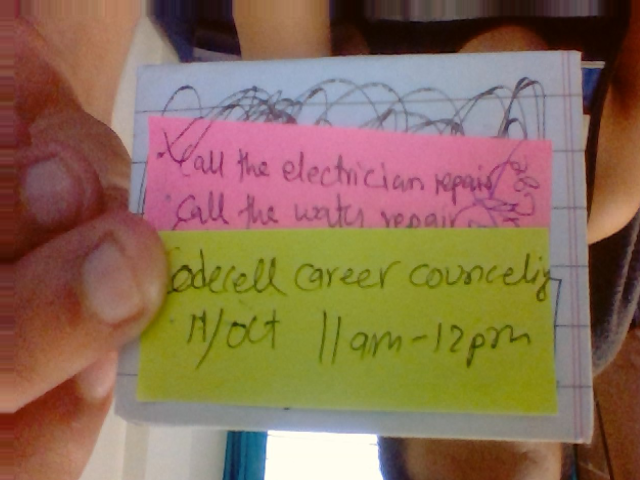 Call the electrician repair
Call the water repair
codecell career counceling
/Oct 11am-12pm